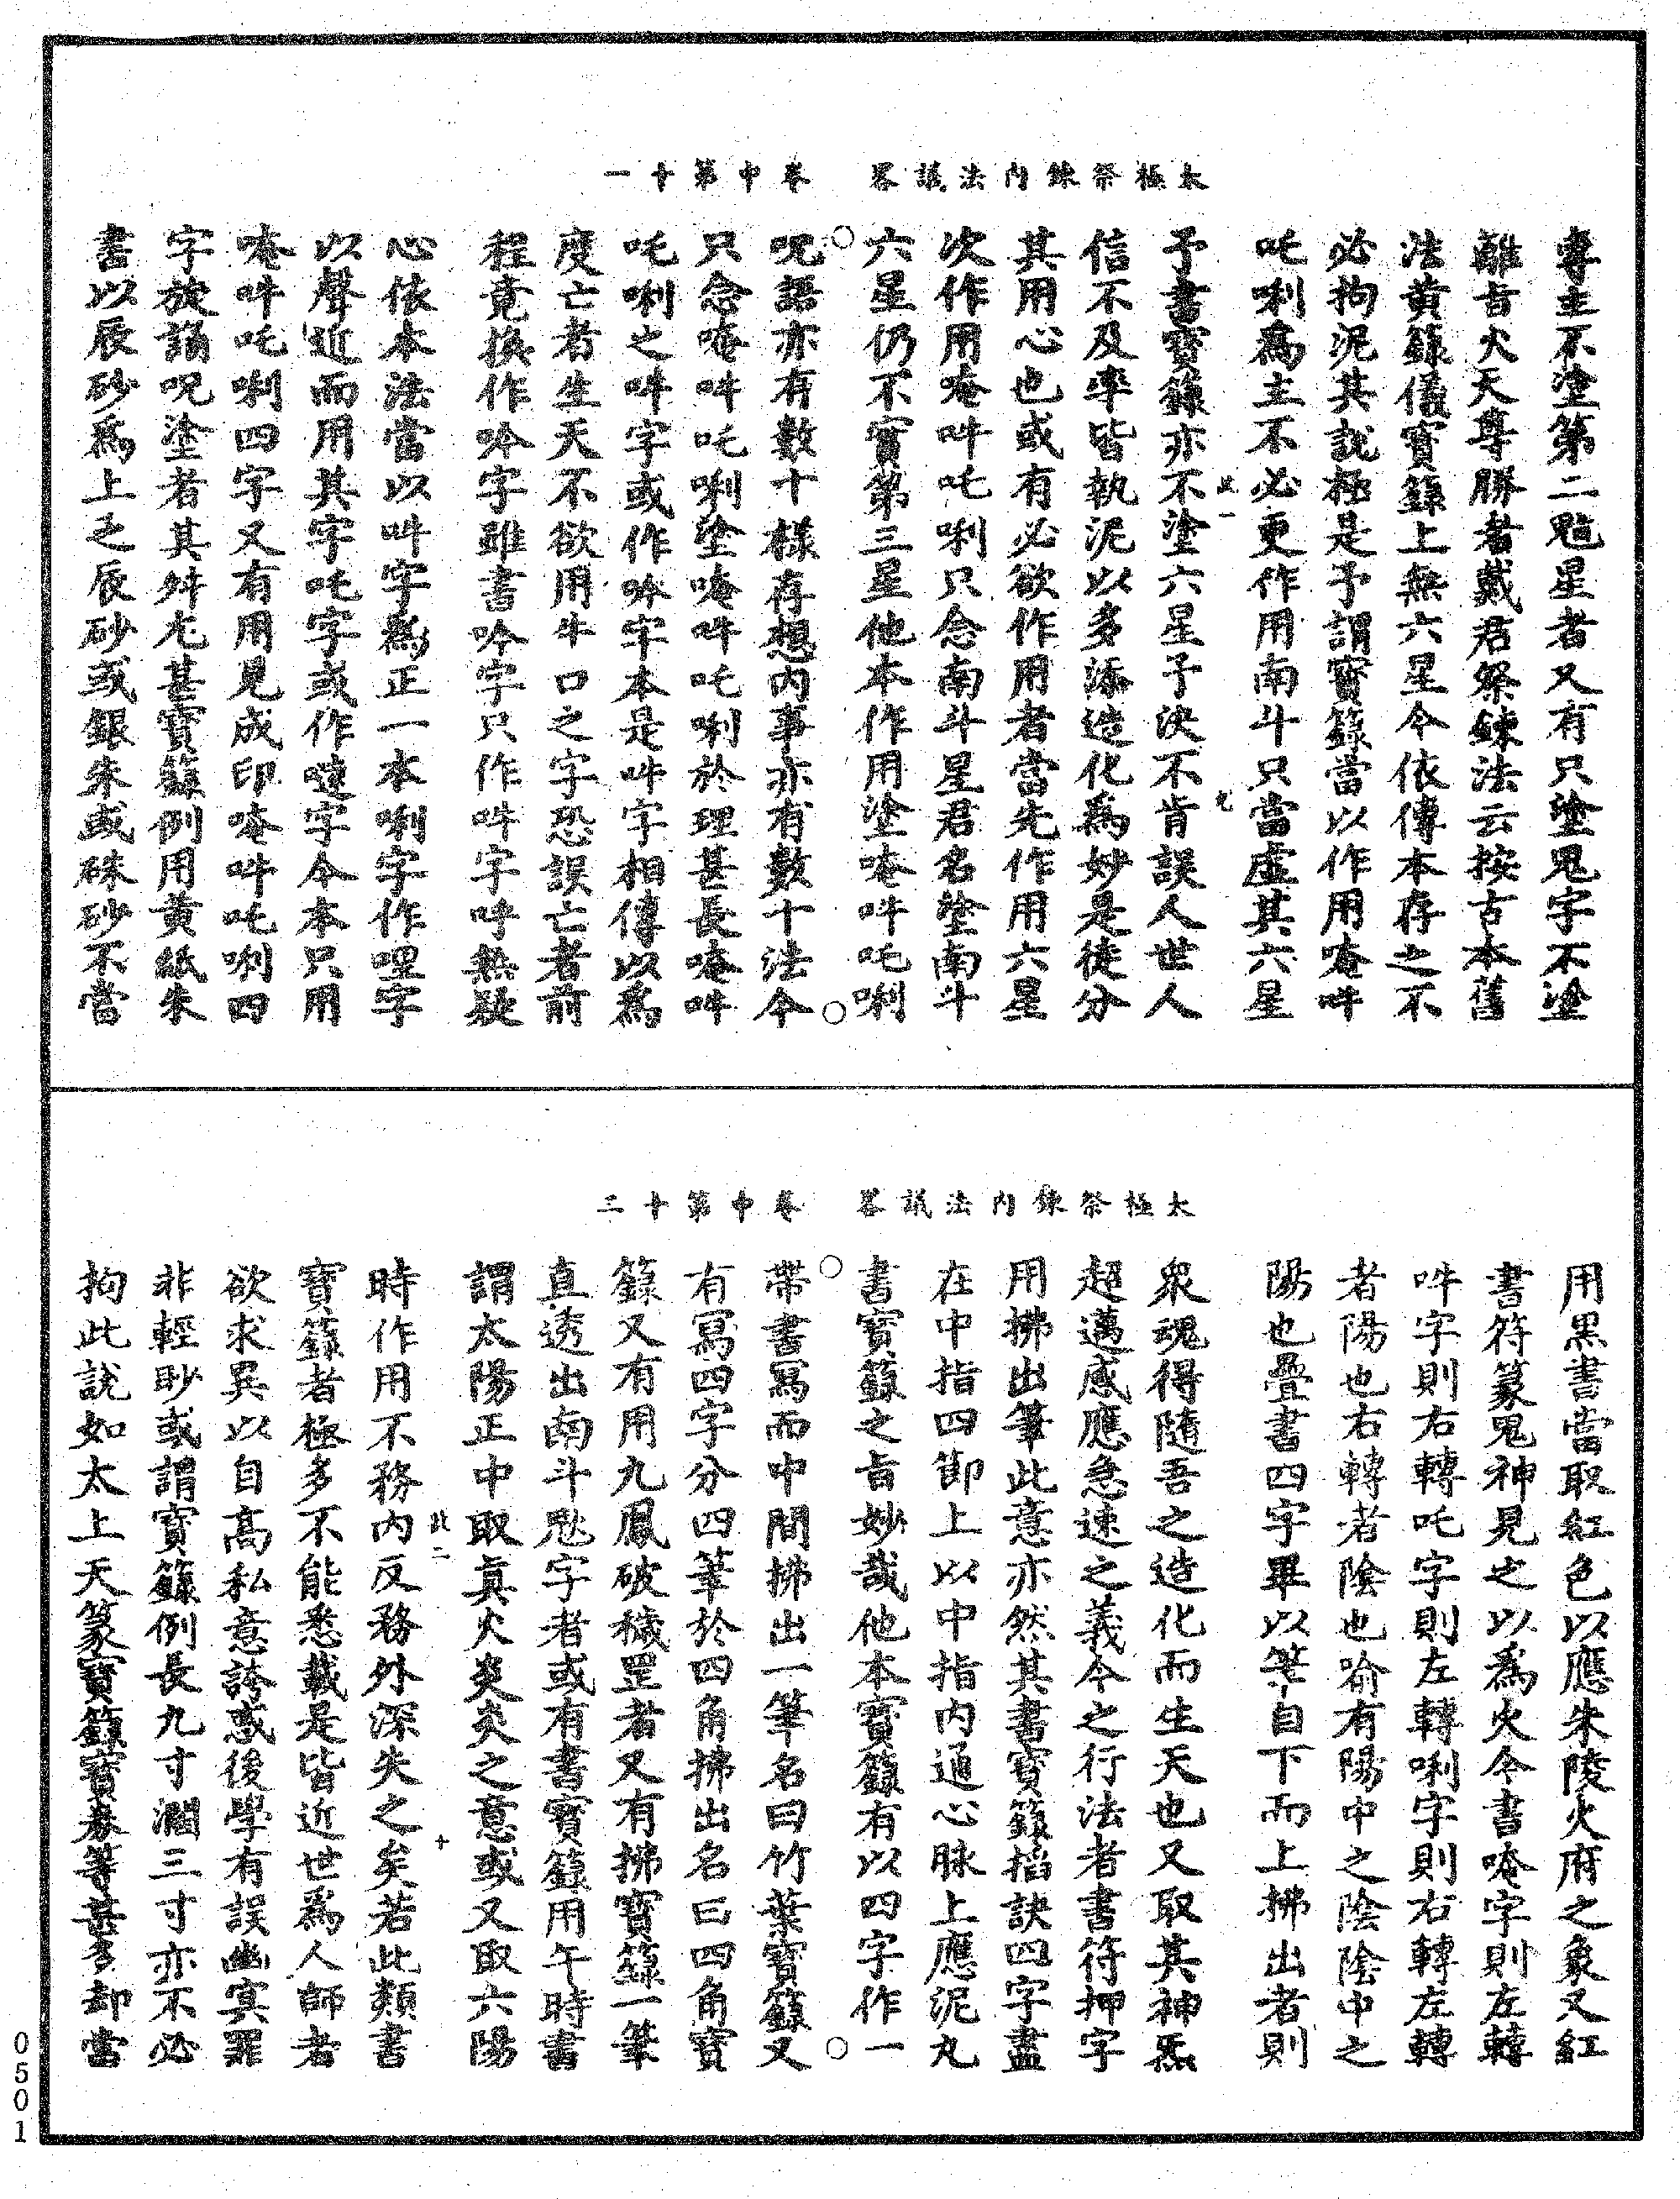 太極祭鍊內法議畧　卷中第十一
專主不塗第二䰢星者又有只塗鬼字不塗
離旨火天尊勝者戴君祭鍊法云按古本舊
法黃籙儀寶籙上無六星今依傳本存之不
必拘泥其說極是予謂寶籙當以作用唵吽
吒唎爲主不必更作用南斗只當虛其六星
予書寶籙亦不塗六星予決不肯誤人世人
信不及率皆執泥以多添造化爲妙是徒分
其用心也或有必欲作用者當先作用六星
次作用唵吽吒唎只念南斗星君名塗南斗
六星仍不實第三星他本作用塗唵吽吒唎
呪語亦有數十樣存想內事亦有數十法今
只念唵吽吒唎塗唵吽吒唎於理甚長唵吽
吒唎之吽字或作吟字本是吽字相傳以爲
度亡者生天不欲用牛口之字恐誤亡者前
程竟換作吟字雖書吟字只作吽字呼無疑
心依本法當以吽字爲正一本唎字作哩字
以聲近而用其字吒字或作噠字今本只用
唵吽吒唎四字又有用見成印唵吽吒唎四
字旋誦呪塗者其舛尤甚寶籙例用黃紙朱
書以辰砂爲上之辰砂或銀朱或硃砂不當
真一
九
太極祭鍊內法議畧　卷中第十二
用黑書當取紅色以應朱陵火府之象又紅
書符篆鬼神見之以爲火今書唵字則左轉
吽字則右轉吒字則左轉唎字則右轉左轉
者陽也右轉者陰也喻有陽中之陰陰中之
陽也疊書四字畢以筆自下而上拂出者則
眾魂得隨吾之造化而生天也又取其神炁
超邁感應急速之義今之行法者書符押字
用拂出筆此意亦然其書寶籙掐訣四字盡
在中指四節上以中指內通心脉上應泥丸
書寶籙之旨妙哉他本寶籙有以四字作一
帶書寫而中間拂出一筆名曰竹葉寶籙又
有寫四字分四筆於四角拂出名曰四角寶
籙又有用九鳳破穢罡者又有拂寶籙一筆
直透出南斗䰢字者或有書寶籙用午時書
謂太陽正中取真火炎炎之意或又取六陽
時作用不務內反務外深失之矣若此類書
寶籙者極多不能悉載是皆近世爲人師者
欲求異以自高私意誇惑後學有誤幽冥罪
非輕眇或謂寶籙例長九寸濶三寸亦不必
拘此說如太上天篆寶籙寶券等甚多却當
真二
十
0501